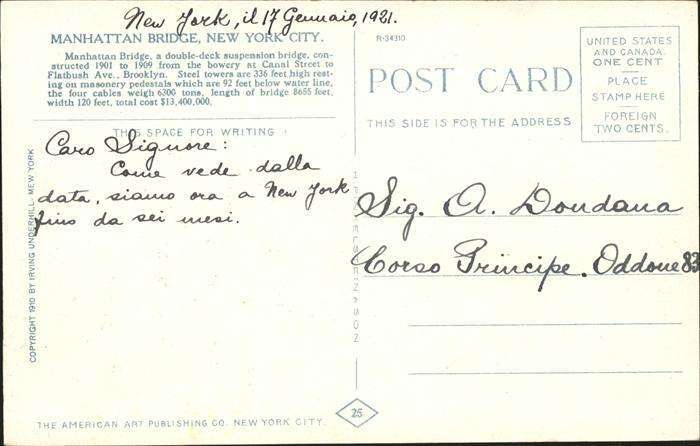 New York, il 17 Gennaio, 1921.
MANHATTAN BRIDGE, NEW YORK CITY.
Manhattan Bridge, a double-deck suspension bridge, con-
structed 1901 to 1909 from the bowery at Canal Street to
Flatbush Ave., Brooklyn. Steel towers are 336 feet high rest-
ing on masonry pedestals which are 92 feet below water line,
the four cables weigh 6300 tons, length of bridge 8655 feet,
width 120 feet, total cost $13,400,000.
THIS SPACE FOR WRITING
Caro Signore:
Come vede dalla
data, siamo ora a New York
fino da sei mesi.
COPYRIGHT 1910 BY IRVING UNDERHILL. NEW YORK
THE AMERICAN ART PUBLISHING CO. NEW YORK CITY.
R-34310
POST CARD
THIS SIDE IS FOR THE ADDRESS
UNITED STATES
AND CANADA
ONE CENT
PLACE
STAMP HERE
FOREIGN
TWO CENTS.
Sig. A. Dondana
Corso Principe. Oddone 83
25